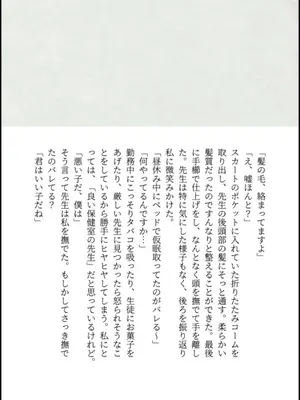 「髪の毛、絡まってますよ」
「え、嘘ほんと？」
スカートのポケットに入れていた折りたたみコームを
取り出し、先生の後頭部の髪にそっと通す。柔らかい
髪質だったのですんなりと整えることができた。最後
に手櫛で仕上げをし、なんとなく頭を撫でて手を離し
た。先生は特に気にした様子もなく、後ろを振り返り
私に微笑みかけた。
「昼休み中にベッドで仮眠取ってたのがバレる〜」
「何やってるんですか…」
勤務中にこっそりタバコを吸ったり、生徒にお菓子を
あげたり、厳しい先生に見つかったら怒られそうなこ
とをしているから勝手にヒヤヒヤしてしまう。私にと
っては、「良い保健室の先生」だと思っているけれど。
「悪い子だ、僕は」
そう言って先生は私を撫でた。もしかしてさっき撫で
たのバレてる？
「君はいい子だね」